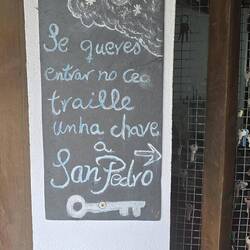 Se queres
entrar no ceo
traille
unha chave
a
San Pedro